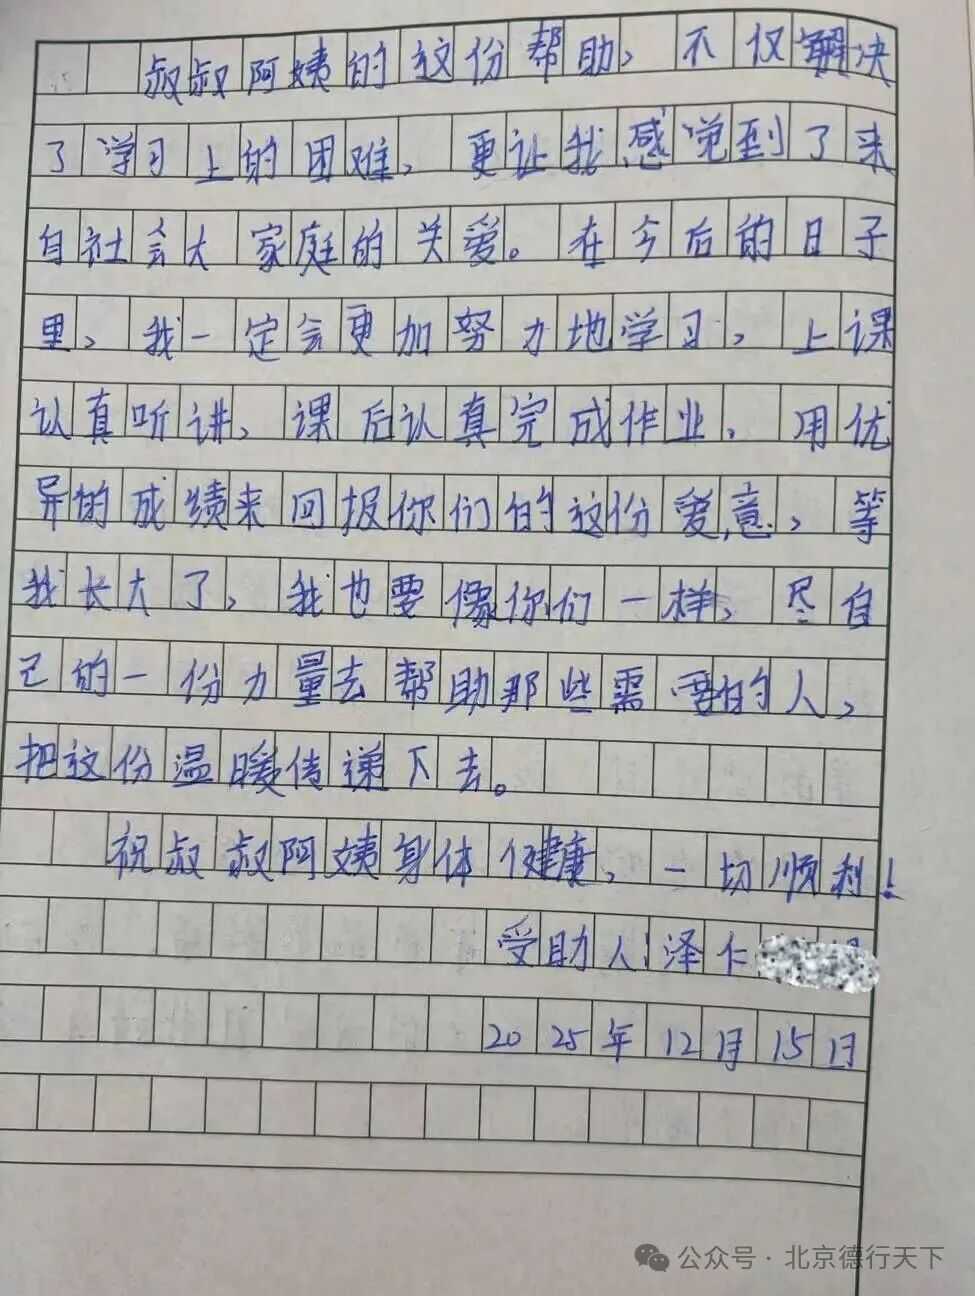 叔叔阿姨的这份帮助，不仅解决
了学习上的困难，更让我感觉到了来
自社会大家庭的关爱。在今后的日子
里，我一定会更加努力地学习，上课
认真听讲、课后认真完成作业，用优
异的成绩来回报你们的这份爱意，等
我长大了，我也要像你们一样，尽自
己的一份力量去帮助那些需要的人，
把这份温暖传递下去。
祝叔叔阿姨身体健康，一切顺利！
受助人：泽仁
2025年12月15日
公众号·北京德行天下